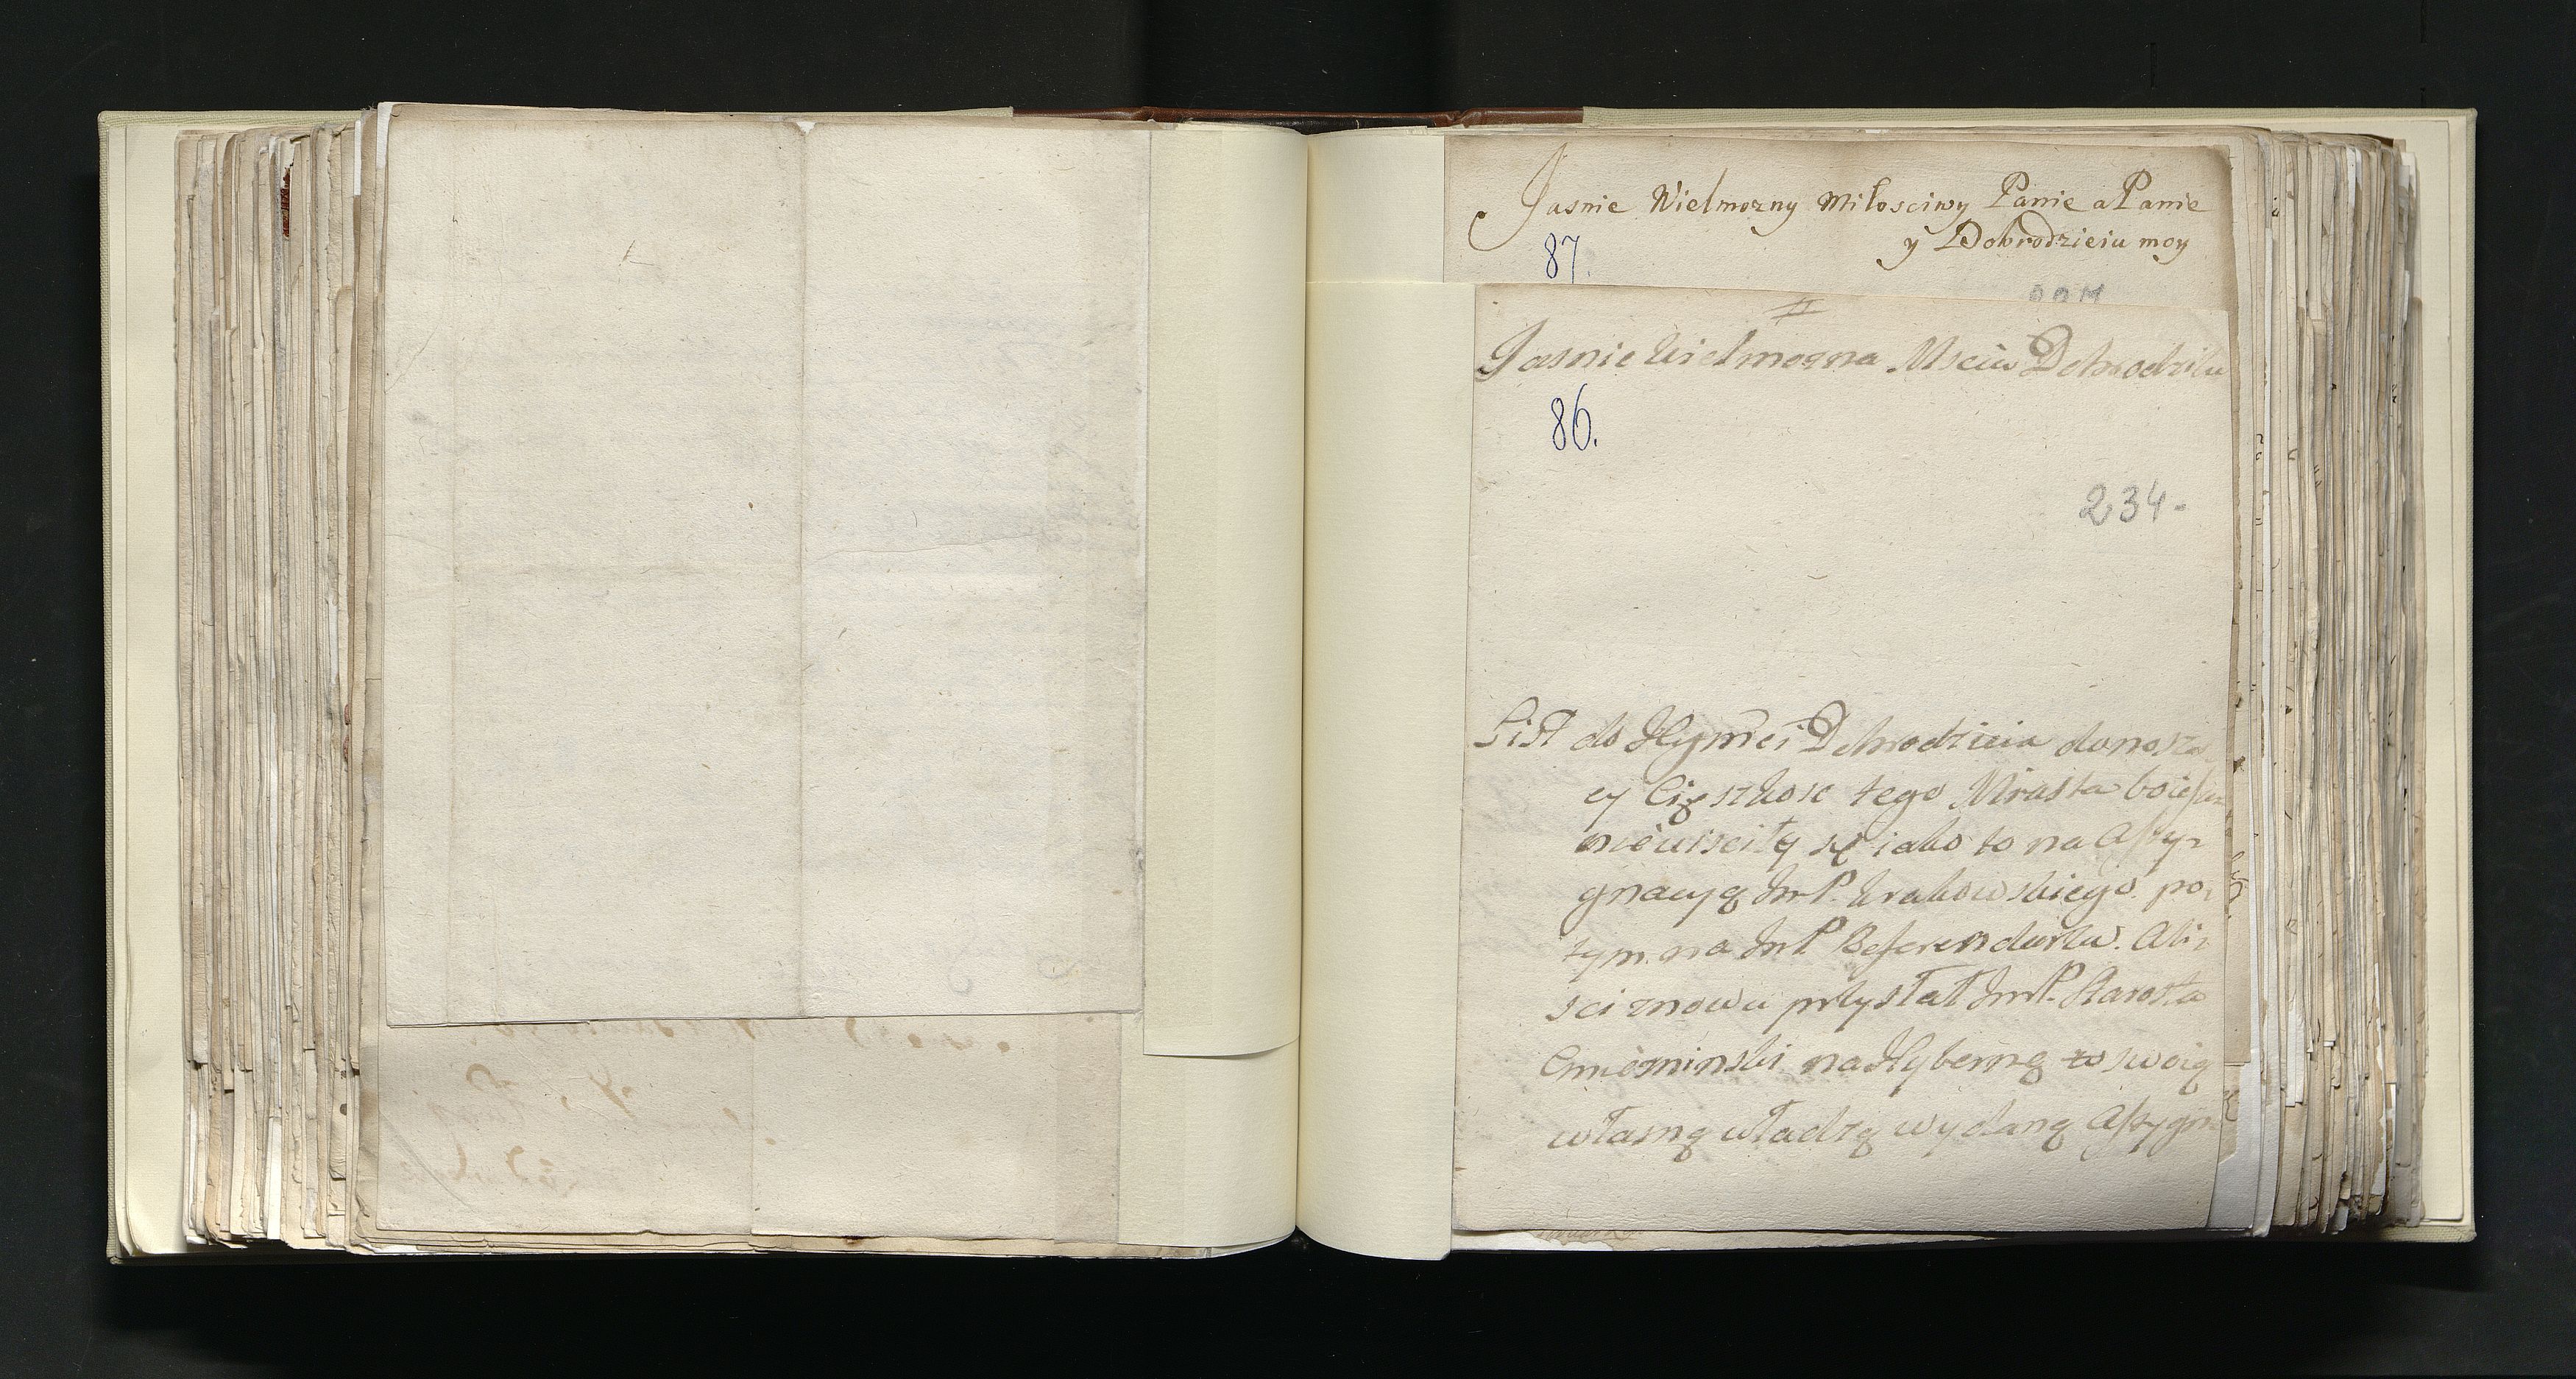 Jasnie Wielmozny Miłosciwy Panie a Panie
y Dobrodzieiu moy
87.
Jasnie Wielmozna Mscia Dobrodziko
86.
234.
List do Jeymci Dobrodzieia donosza
cy Cięszkosc tego Miasta
nieuisciły się iako to na Assy-
gnacyą JmP. krakowskiego. po-
tym na JmP Referendarza. Ali-
sci znowu przysłał JmP. Starosta
Chmieminski na Hybernę zo swoią
własną władzą wydaną Assygn